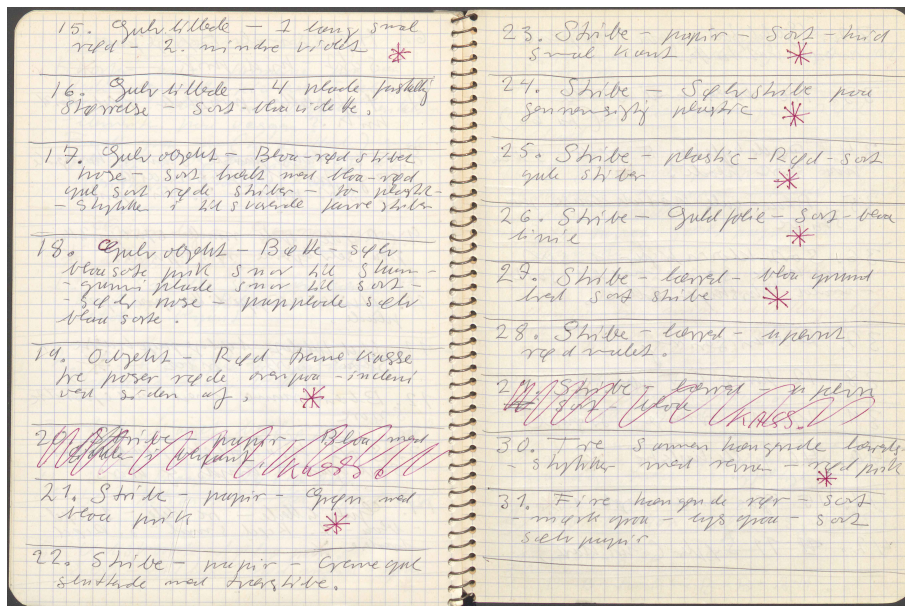 15. Gulvbillede - 1 lang smal
rød - 2. mindre violet
16. Gulvbillede - 4 plade forskellig
størrelse - sort-blaa side be.
17. Gulvobjekt - Blaa-rød stribet
hose - sort bælt med blaa-rød
gul sort røde striber - to plastik-
- stykker i tilsvarende farve striber
18. Gulvobjekt - Bøtte - sølv
blaa sorte prik snor til skum-
- gummi plade snor til sort-
- sølv hose - papplade sølv
blaa sorte.
19. Objekt - Rød træme kasse
tre poser røde ovenpaa - indeni
ved siden af.
20. Stribe - papir - Blaa med
KASS.
21. Stribe - papir - Grøn med
blaa prik
22. Stribe - papir - Creme gul
sluttede med tværstribe.
23. Stribe - papir - Sort - hvid
smal kant
24. Stribe - Sølvstribe paa
gennemsigtig plastic
25. Stribe - plastic - Rød - sort
gule striber
26. Stribe - Guldfolie - sort-blaa
linie
27. Stribe - lærred - blaa grund
hvid sort stribe
28. Stribe - lærred - upævnt
rød malet.
29. Stribe - lærred - upævn
sort - blaa KASS.
30. Tre sammenhængende lærreds-
- stykker med remme - rød prik
31. Fire hængende rør - sort
- mørk graa - lys graa - sort
sølvpapir